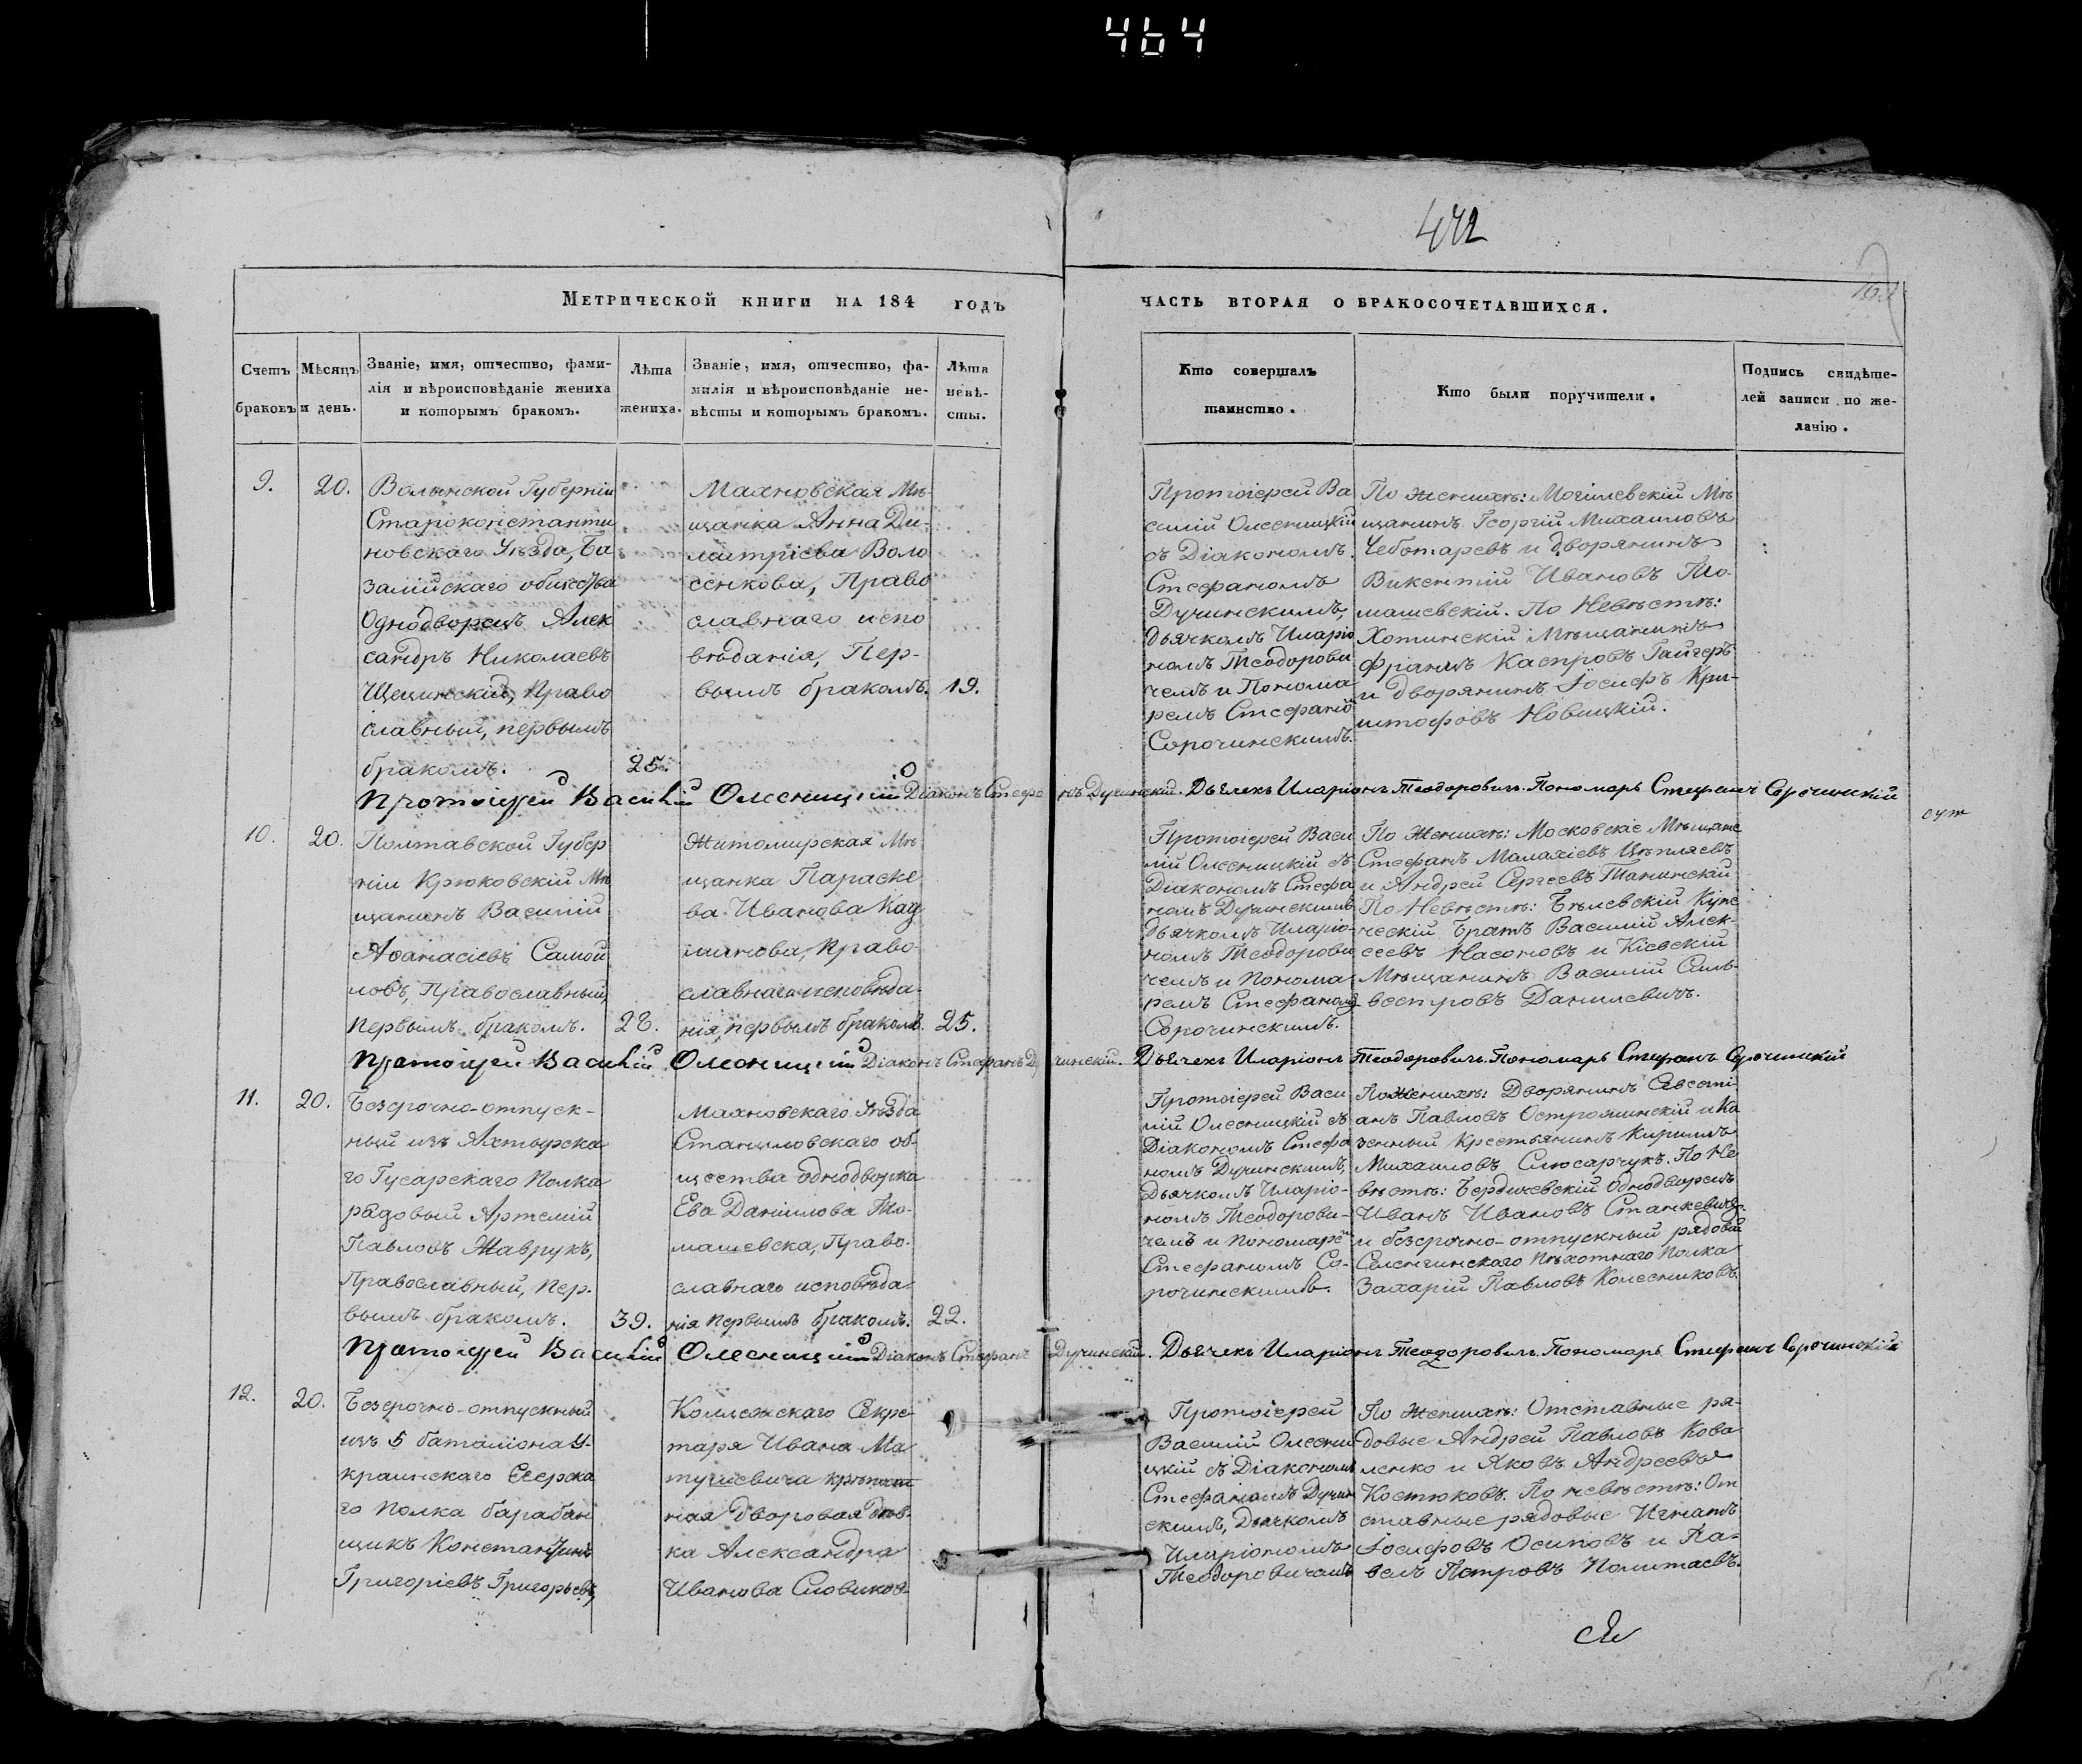 464
472
Метрической книги на 184 годъ
часть вторая о бракосочетавшихся.
Счетъ
браковъ
Мѣсяцъ
и день.
Званіе, имя, отчество, фами-
лія и вѣроисповѣданіе жениха
и которымъ бракомъ.
Лѣта
жениха.
Званіе, имя, отчество, фа-
милія и вѣроисповѣданіе не-
вѣсты и которымъ бракомъ.
Лѣта
невѣ-
сты.
Кто совершалъ
таинство.
Кто были поручители.
Подпись свидѣте-
лей записи по же-
ланію.
9.
20.
Волынской Губерніи
Староконстанти
новскаго Уѣзда, Ба
залійскаго общества
Однодворецъ Алек
сандръ Николаевъ
Щецинскій, Право
славный, первымъ
бракомъ.
25.
Махновская Мѣ-
щанка Анна Ди-
митріева Воло
сенкова, Право
славнаго испо
вѣданія, Пер-
вымъ бракомъ.
19.
Протоіерей Ва
силій Олесницкій
съ Діакономъ
Стефаномъ
Дучинскимъ,
Дьячкомъ Иларіо
номъ Теодорови
чемъ и Понома
ремъ Стефаномъ
Сорочинскимъ.
По женихѣ: Могилевскій Мѣ
щанинъ Георгій Михаиловъ
Чеботаревъ и дворянинъ
Викентій Ивановъ То-
машевскій. По Невѣстѣ:
Хотинскій Мѣщанинъ
Францъ Каспровъ Гайгеръ
и дворянинъ Іосифъ Кри-
штофовъ Новицкій.
Протоіерей Василій Олесницкій Діаконъ Стефанъ Дучинскій. Дьячекъ Иларіонъ Теодоровичъ. Пономарь Стефанъ Сорочинскій
10.
20.
Полтавской Губер
ніи Крюковскій Мѣ
щанинъ Василій
Аѳанасіевъ Самой
ловъ, Православный,
первымъ бракомъ.
28.
Житомирская Мѣ
щанка Параске
ва Иванова
Право-
славнаго исповѣда-
нія, первымъ бракомъ.
25.
Протоіерей Васи
лій Олесницкій съ
Діакономъ Стефа
номъ Дучинскимъ
дьячкомъ Иларіо-
номъ Теодорови
чемъ и Понома
ремъ Стефаномъ
Сорочинскимъ.
По Женихѣ: Московскіе Мѣщане
Стефанъ Малахіевъ Цѣпляевъ
и Андрей Сергеевъ Танинскій
По Невѣстѣ: Бѣлевскій Купе
ческій Братъ Василій Алек-
сеевъ Насоновъ и Кіевскій
Мѣщанинъ Василій Силь-
вестровъ Данилевичъ.
Протоіерей Василій Олесницкій Діаконъ Стефанъ Дучинскій. Дьячекъ Иларіонъ Теодоровичъ. Пономарь Стефанъ Сорочинскій
11.
20.
Безсрочно-отпуск-
ный изъ Ахтырска
го Гусарскаго Полка
рядовый Артемій
Павловъ Жаврукъ,
Православный, пер-
вымъ бракомъ.
39.
Махновскаго Уѣзда
Станиловскаго об-
щества однодворка
Ева Даніилова То-
машевска, Право-
славнаго исповѣда-
нія первымъ бракомъ.
22.
Протоіерей Васи
лій Олесницкій съ
Діакономъ Стефа
номъ Дучинскимъ,
Дьячкомъ Иларіо-
номъ Теодорови-
чемъ и пономаремъ
Стефаномъ Со-
рочинскимъ.
По Женихѣ: Дворянинъ Севасті
анъ Павловъ Острожинскій и Ка
зенный Крестьянинъ Кириллъ
Михаиловъ Слюсарчукъ. По Не
вѣстѣ: Бердичевскій Однодворецъ
Иванъ Ивановъ Станкевичъ
и безсрочно-отпускный рядовой
Селенгинскаго Пѣхотнаго Полка
Захарій Павловъ Колесниковъ.
Протоіерей Василій Олесницкій Діаконъ Стефанъ Дучинскій. Дьячекъ Иларіонъ Теодоровичъ. Пономарь Стефанъ Сорочинскій
12.
20.
Безсрочно-отпускный
изъ 5 баталіона У-
краинскаго Егерска
го полка барабан
щикъ Константинъ
Григоріевъ Григорьевъ,
Коллежскаго Секре-
таря Ивана Ма
тушевича крѣпост
ная дворовая дѣв-
ка Александра
Иванова Словиков
Протоіерей
Василій Олесни
цкій съ Діакономъ
Стефаномъ Дучин
скимъ, Дьячкомъ
Иларіономъ
Теодоровичемъ
По Женихѣ: Отставные ря-
довые Андрей Павловъ Кова
ленко и Яковъ Андреевъ
Костюковъ. По невѣстѣ: От
ставные рядовые Игнатъ
Іосифовъ Осиповъ и Па-
велъ Петровъ Полтаевъ.